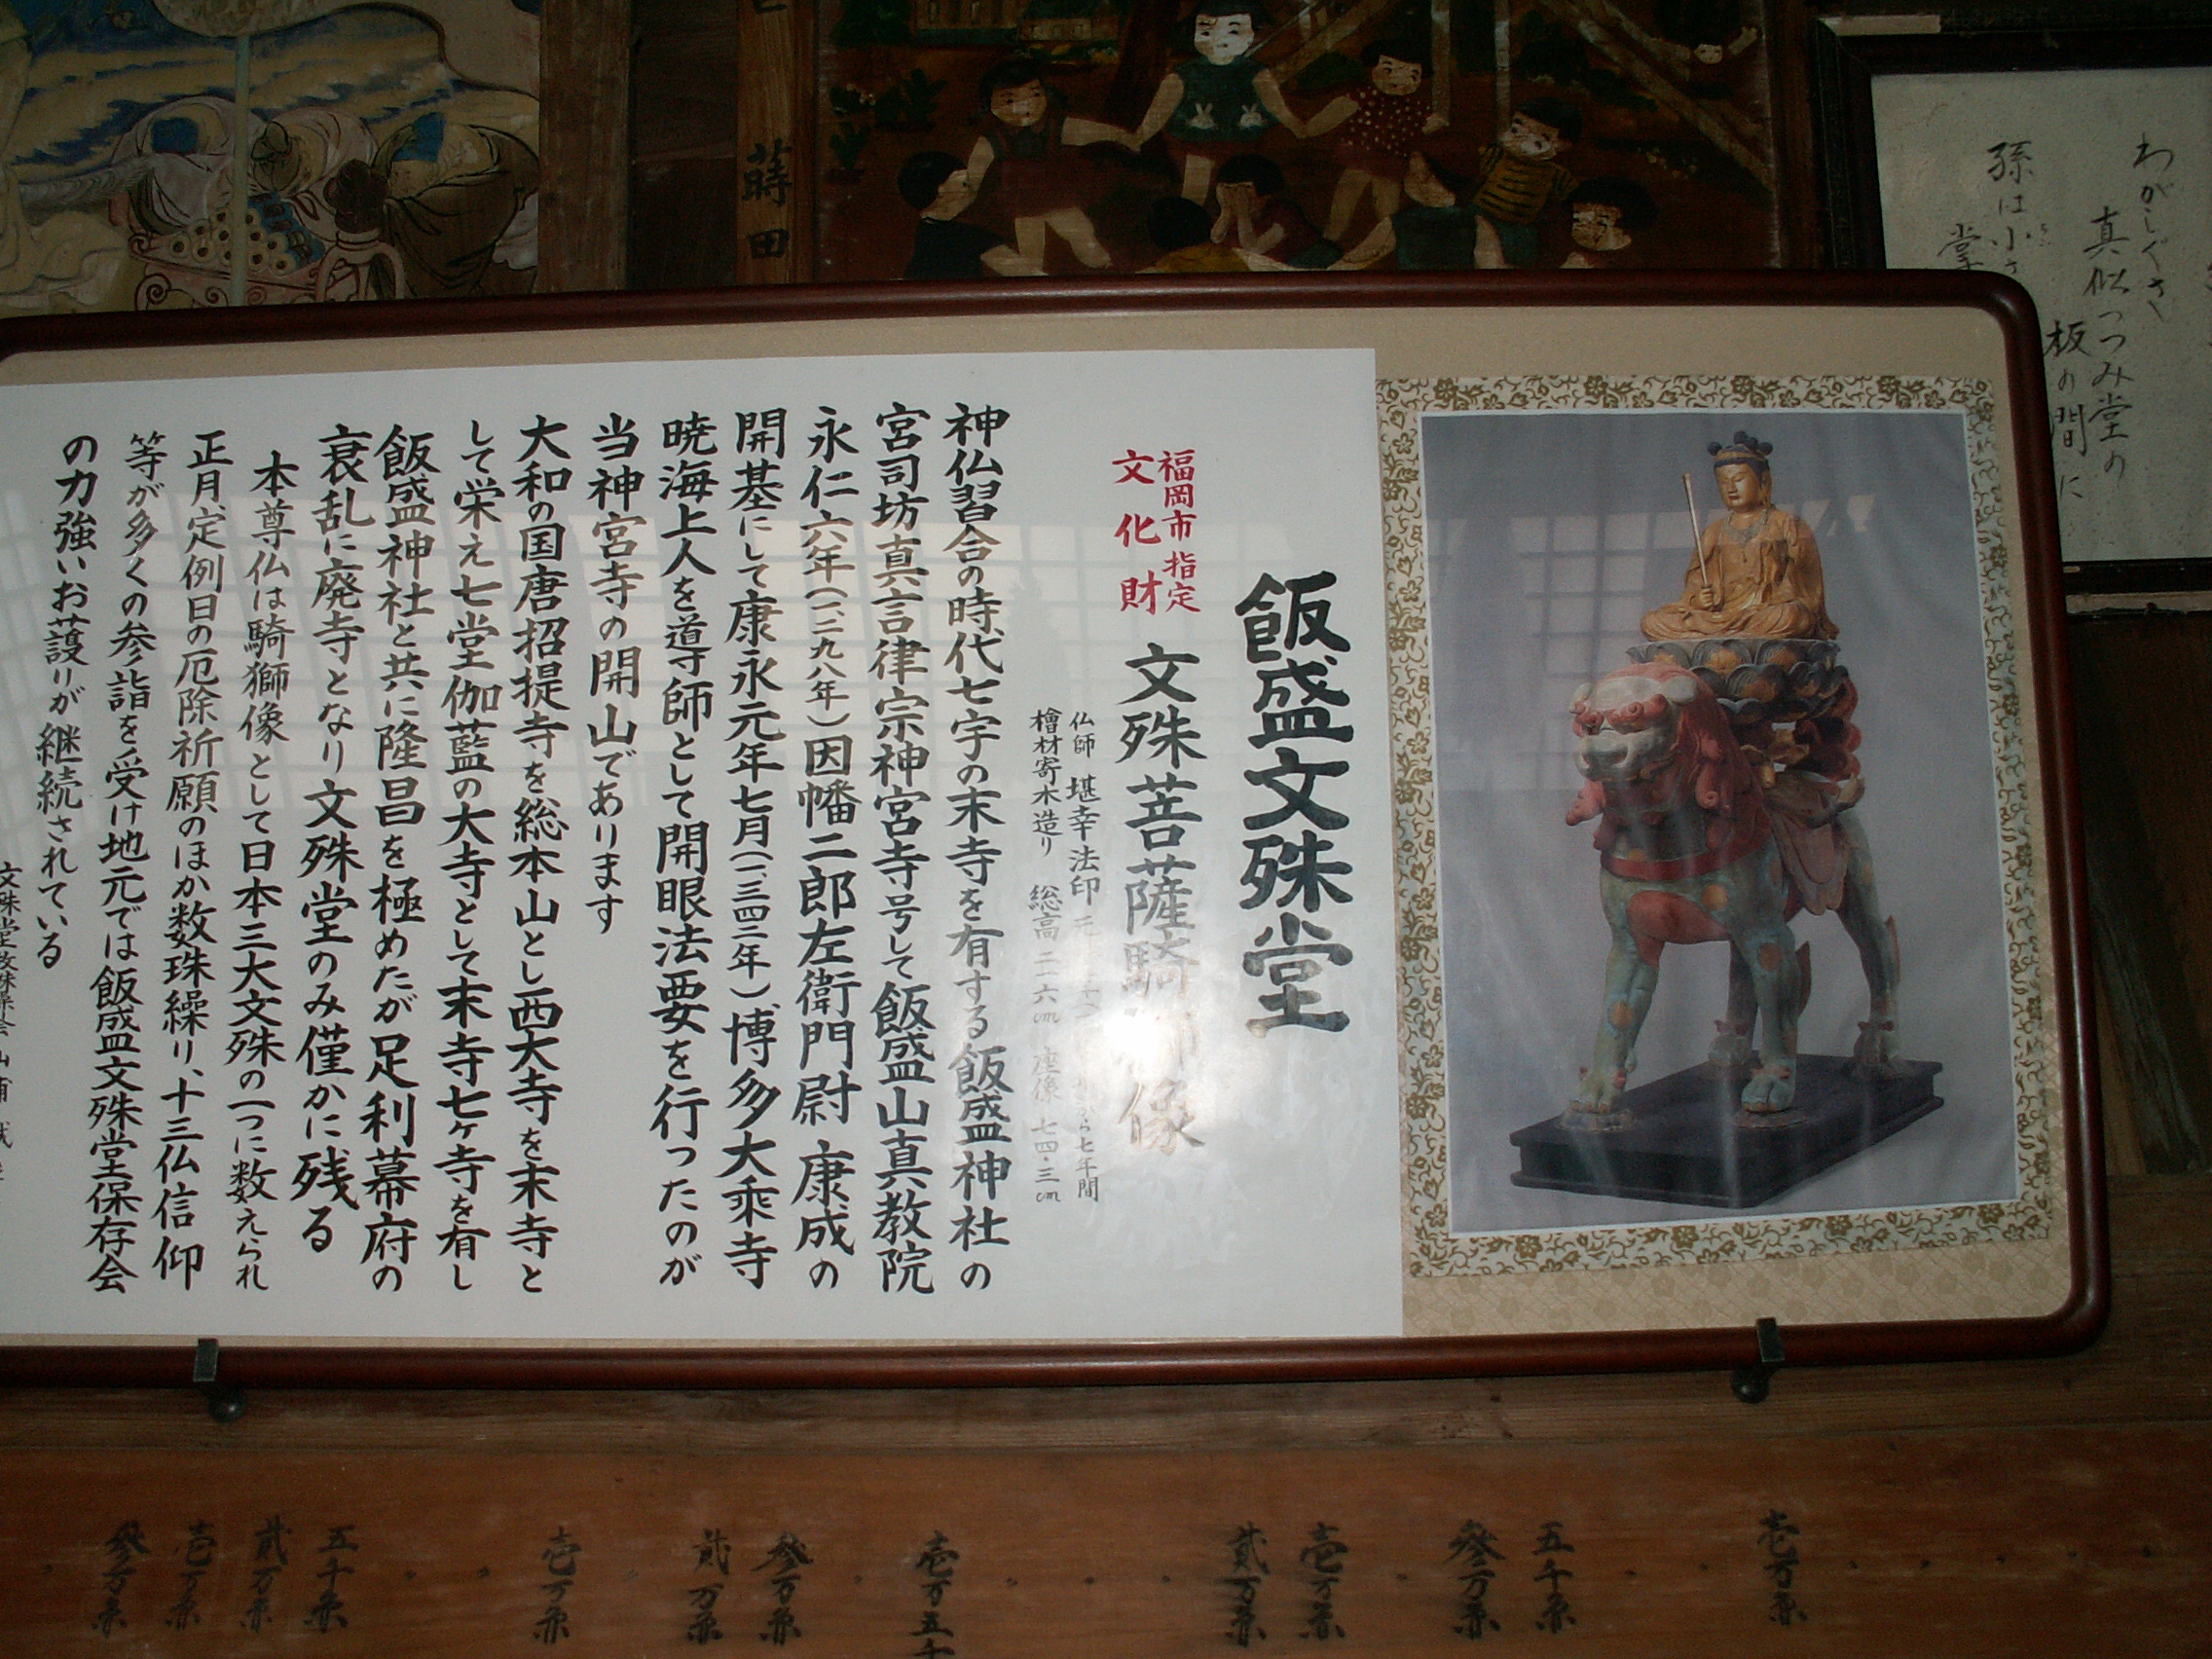 飯盛文殊堂
福岡市指定
文化財
文殊菩薩騎獅像
仏師 堪幸法印 元 から七年間
檜材寄木造り 総高 二一六cm 座像 七四・三cm
神仏習合の時代七宇の末寺を有する飯盛神社の
宮司坊真言律宗神宮寺号して飯盛山真教院
永仁六年(一二九八年)因幡二郎左衛門尉 康成の
開基にして康永元年七月(一、三四二年)、博多大乗寺
暁海上人を導師として開眼法要を行ったのが
当神宮寺の開山であります
大和の国唐招提寺を総本山とし西大寺を末寺と
して栄え七堂伽藍の大寺として末寺七ヶ寺を有し
飯盛神社と共に隆昌を極めたが足利幕府の
衰乱に廃寺となり文殊堂のみ僅かに残る
本尊仏は騎獅像として日本三大文殊の一つに数えられ
正月、定例日の厄除祈願のほか数珠繰り、十三仏信仰
等が多くの参詣を受け地元では飯盛文殊堂保存会
の力強いお護りが継続されている
わがしぐさ
真似つつみ堂の
板の間に
孫は小さ
掌
蒔田
壱万円
五千円
参万円
壱万円
貮万円
壱万五千
参万円
貮万円
壱万円
五千円
貮万円
壱万円
参万円